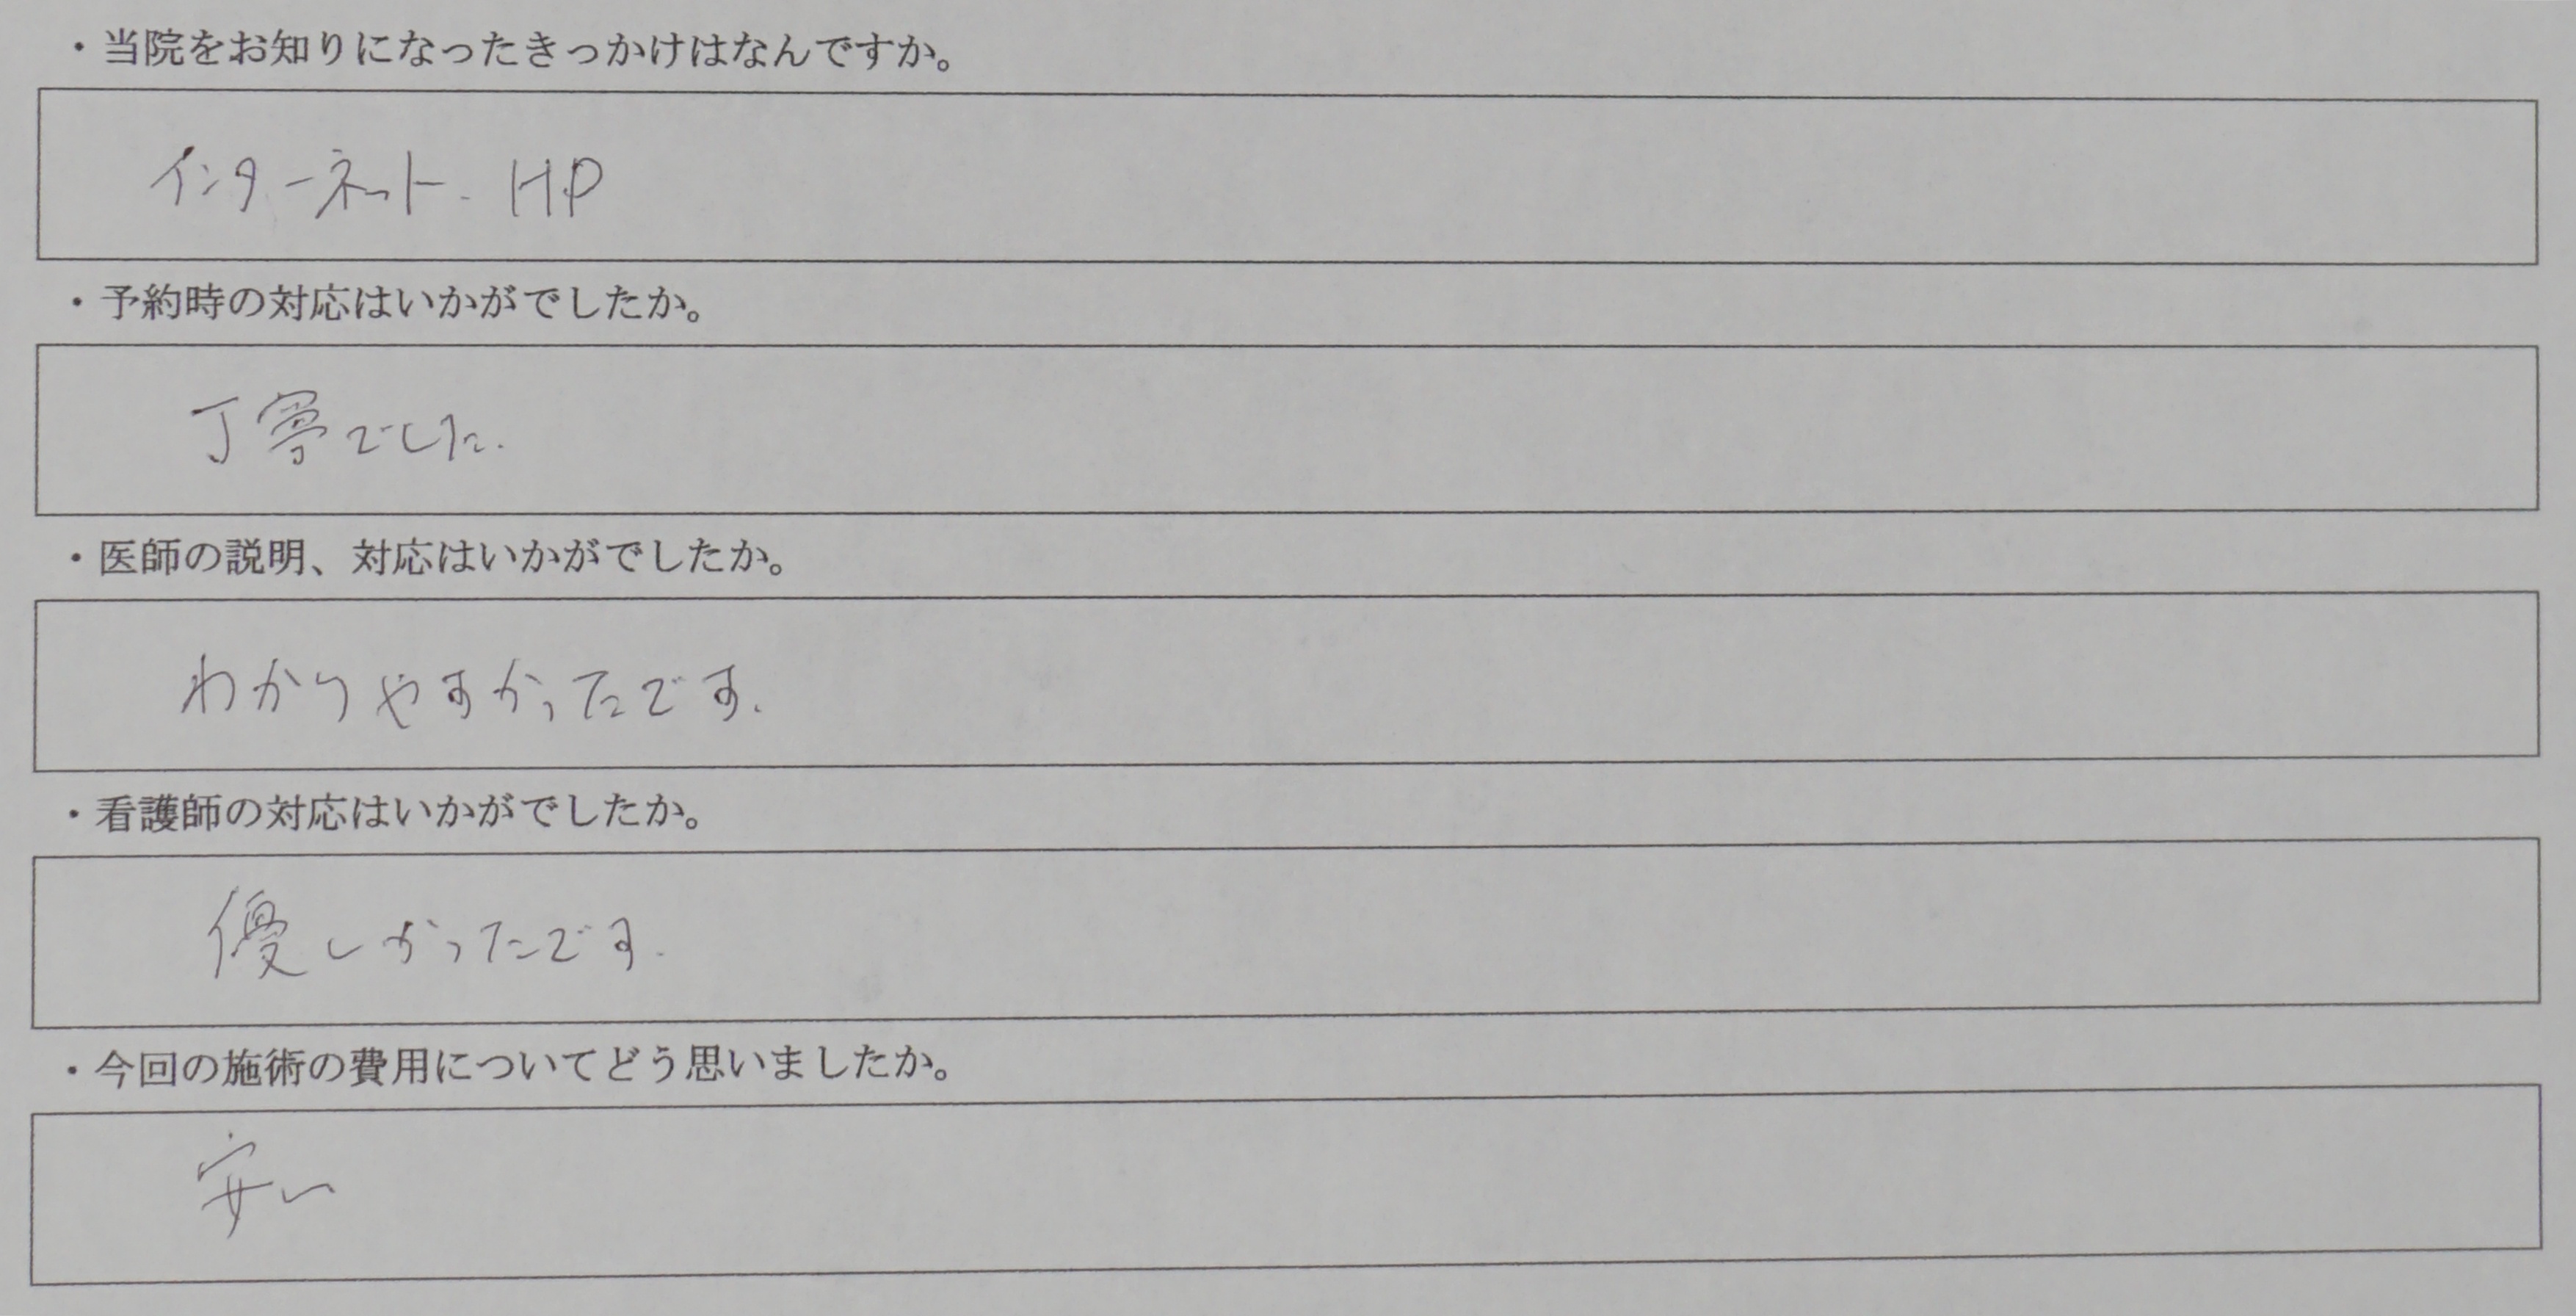 ・当院をお知りになったきっかけはなんですか。
インターネット. HP
・予約時の対応はいかがでしたか。
丁寧でした.
・医師の説明、対応はいかがでしたか。
わかりやすかったです.
・看護師の対応はいかがでしたか。
優しかったです.
・今回の施術の費用についてどう思いましたか。
安い